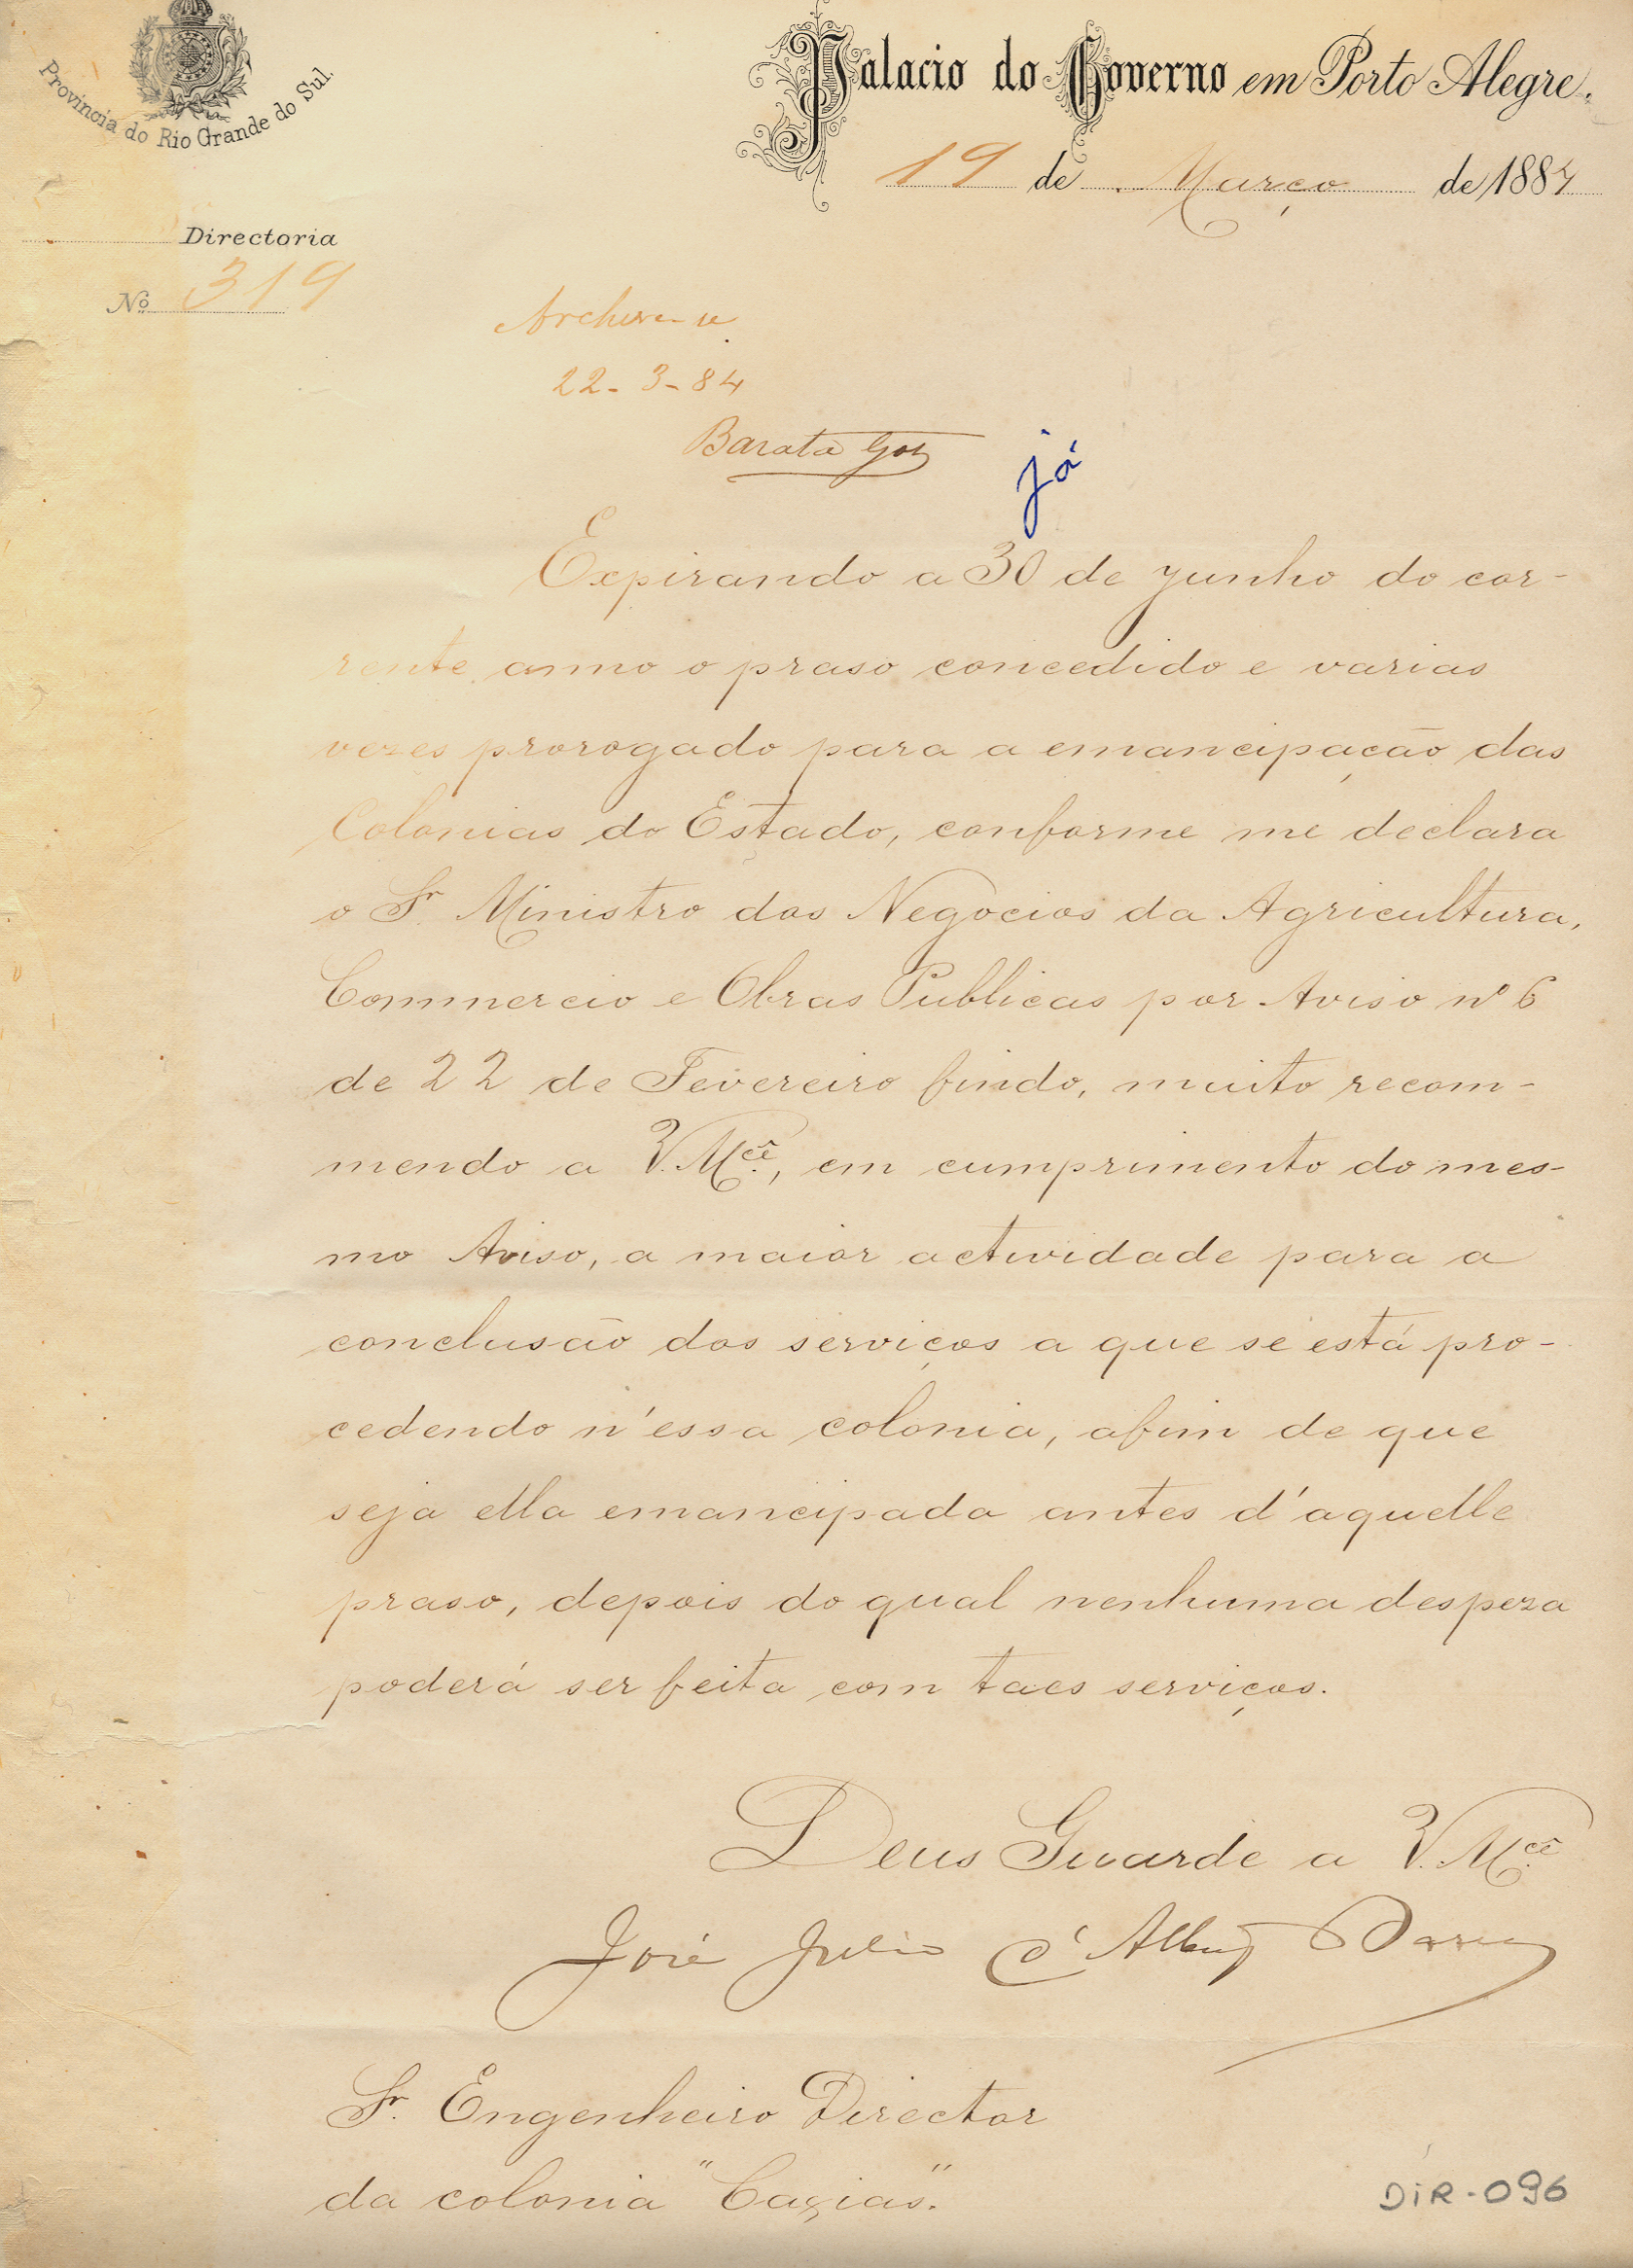 Provincia do Rio Grande do Sul.
Palacio do Governo em Porto Alegre.
19 de Março de 1884
Directoria
Nº 319
Archive-se
22-3-84
Barata Góes
já
Expirando a 30 de junho do cor-
rente anno o praso concedido e varias
vezes prorogado para a emancipação das
Colonias do Estado, conforme me declara
o Sr. Ministro dos Negocios da Agricultura,
Commercio e Obras Publicas por Aviso nº 6
de 22 de Fevereiro findo, muito recom-
mendo a V. Mcê, em cumprimento do mes-
mo Aviso, a maior actividade para a
conclusão dos serviços a que se está pro-
cedendo n'essa colonia, afim de que
seja ella emancipada antes d'aquelle
praso, depois do qual nenhuma despeza
poderá ser feita com taes serviços.
Deus Guarde a V. Mcê
José Julio d'Albuq Barros
Sr. Engenheiro Director
da colonia "Caxias".
DiR-096